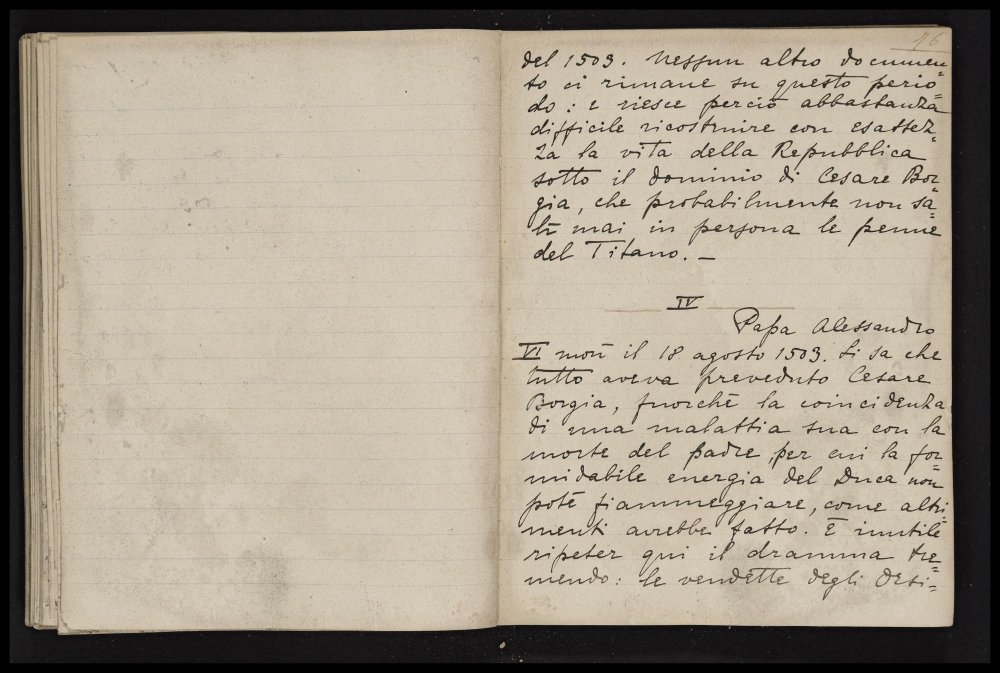 46
del 1503. Nessun altro documen=
to ci rimane su questo perio=
do: e riesce perciò abbastanza
difficile ricostruire con esattez=
za la vita della Repubblica
sotto il dominio di Cesare Bor=
gia, che probabilmente non sa=
lì mai in persona le penne
del Titano. —
IV
Papa Alessandro
VI morì il 18 agosto 1503. Si sa che
tutto aveva preveduto Cesare
Borgia, fuorchè la coincidenza
di una malattia sua con la
morte del padre, per cui la for=
midabile energia del Duca non
potè fiammeggiare, come altri=
menti avrebbe fatto. È inutile
ripeter qui il dramma tre=
mendo: le vendette degli Orsi=